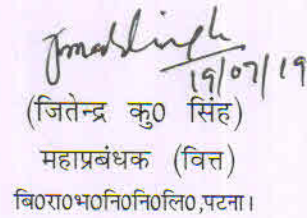 19/07/19
(जितेन्द्र कु0 सिंह)
महाप्रबंधक (वित्त)
बि0रा0भ0नि0नि0लि0,पटना।